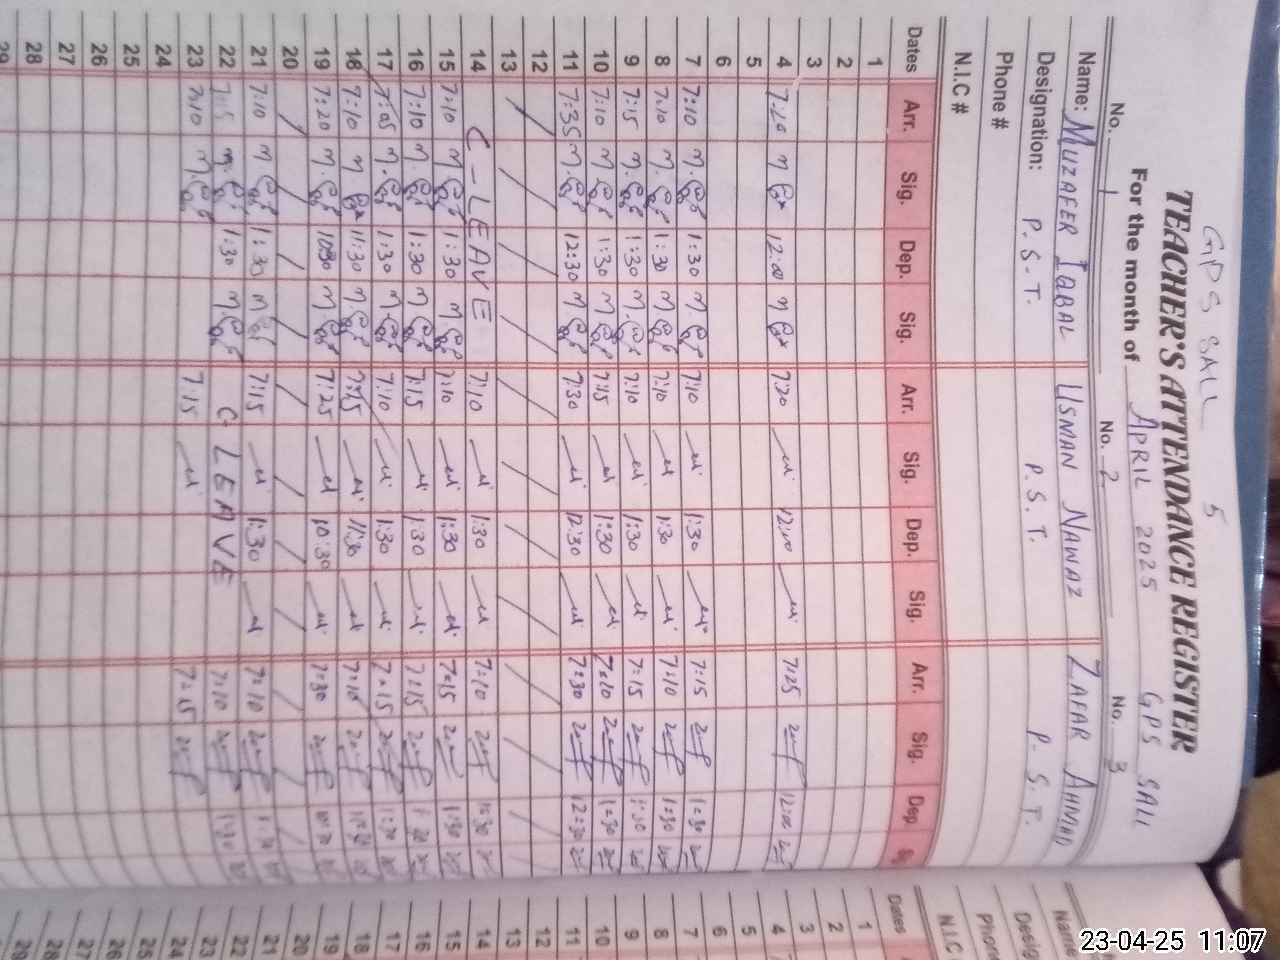 GPS SALL 5
TEACHER'S ATTENDANCE REGISTER
For the month of APRIL 2025 GPS SALL
No. 1 No. 2 No. 3
Name: MUZAFER IQBAL USMAN NAWAZ ZAFAR AHMAD
Designation: P.S.T. P.S.T. P.S.T.
Phone #
N.I.C #
Dates Arr. Sig. Dep. Sig. Arr. Sig. Dep. Sig. Arr. Sig. Dep.
1
2
3
4 7:20 12:00 7:20 12:00 7:25 12:00
5
6
7 7:10 1:30 7:10 1:30 7:15 1:30
8 7:10 1:30 7:10 1:30 7:10 1:30
9 7:15 1:30 7:10 1:30 7:15 1:30
10 7:10 1:30 7:15 1:30 7:10 1:30
11 7:35 12:30 7:30 12:30 7:30 12:30
12
13
14 C-LEAVE 7:10 1:30 7:10 1:30
15 7:10 1:30 7:10 1:30 7:15 1:30
16 7:10 1:30 7:15 1:30 7:15 1:30
17 7:05 1:30 7:10 1:30 7:15 1:30
18 7:10 11:30 7:15 11:30 7:10
19 7:20 10:30 7:25 10:30 7:30 10:30
20
21 7:10 1:30 7:15 1:30 7:10 1:30
22 7:15 1:30 C-LEAVE 7:10 1:30
23 7:10 7:15 7:15
24
25
26
27
28
29
Name
Design
Phone
N.I.C
Dates
1
2
3
4
5
6
7
8
9
10
11
12
13
14
15
16
17
18
19
20
21
22
23
24
25
26
27
28
29
23-04-25 11:07